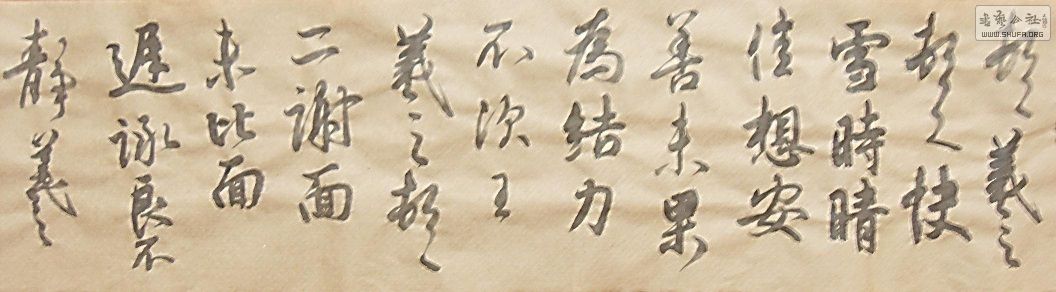 頓首羲之
頓首快
雪時晴
佳想安
善未果
為結力
不次王
羲之頓首
二謝面
未比面
遲詠良不
靜羲之
書藝公社
WWW.SHUFA.ORG